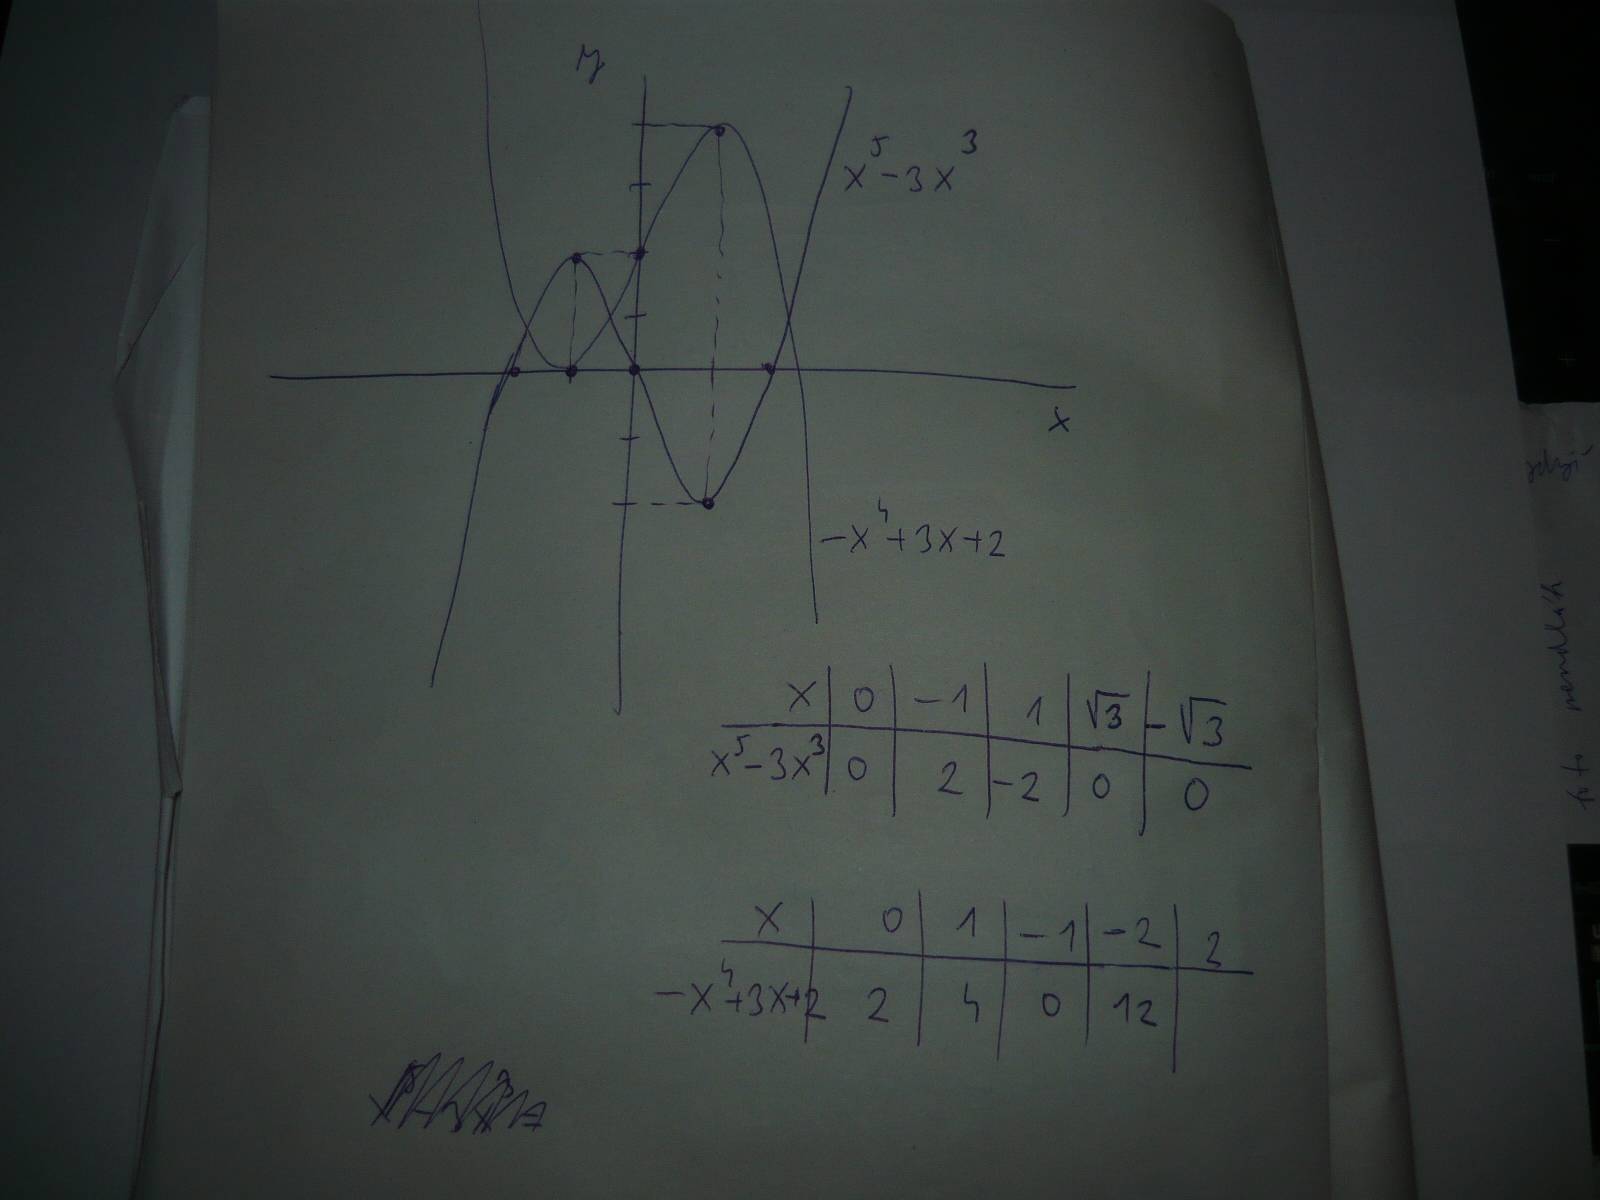 y
x⁵-3x³
x
-x⁴+3x+2
x 0 -1 1 √3 -√3
x⁵-3x³ 0 2 -2 0 0
x 0 1 -1 -2 2
-x⁴+3x+2 2 4 0 12